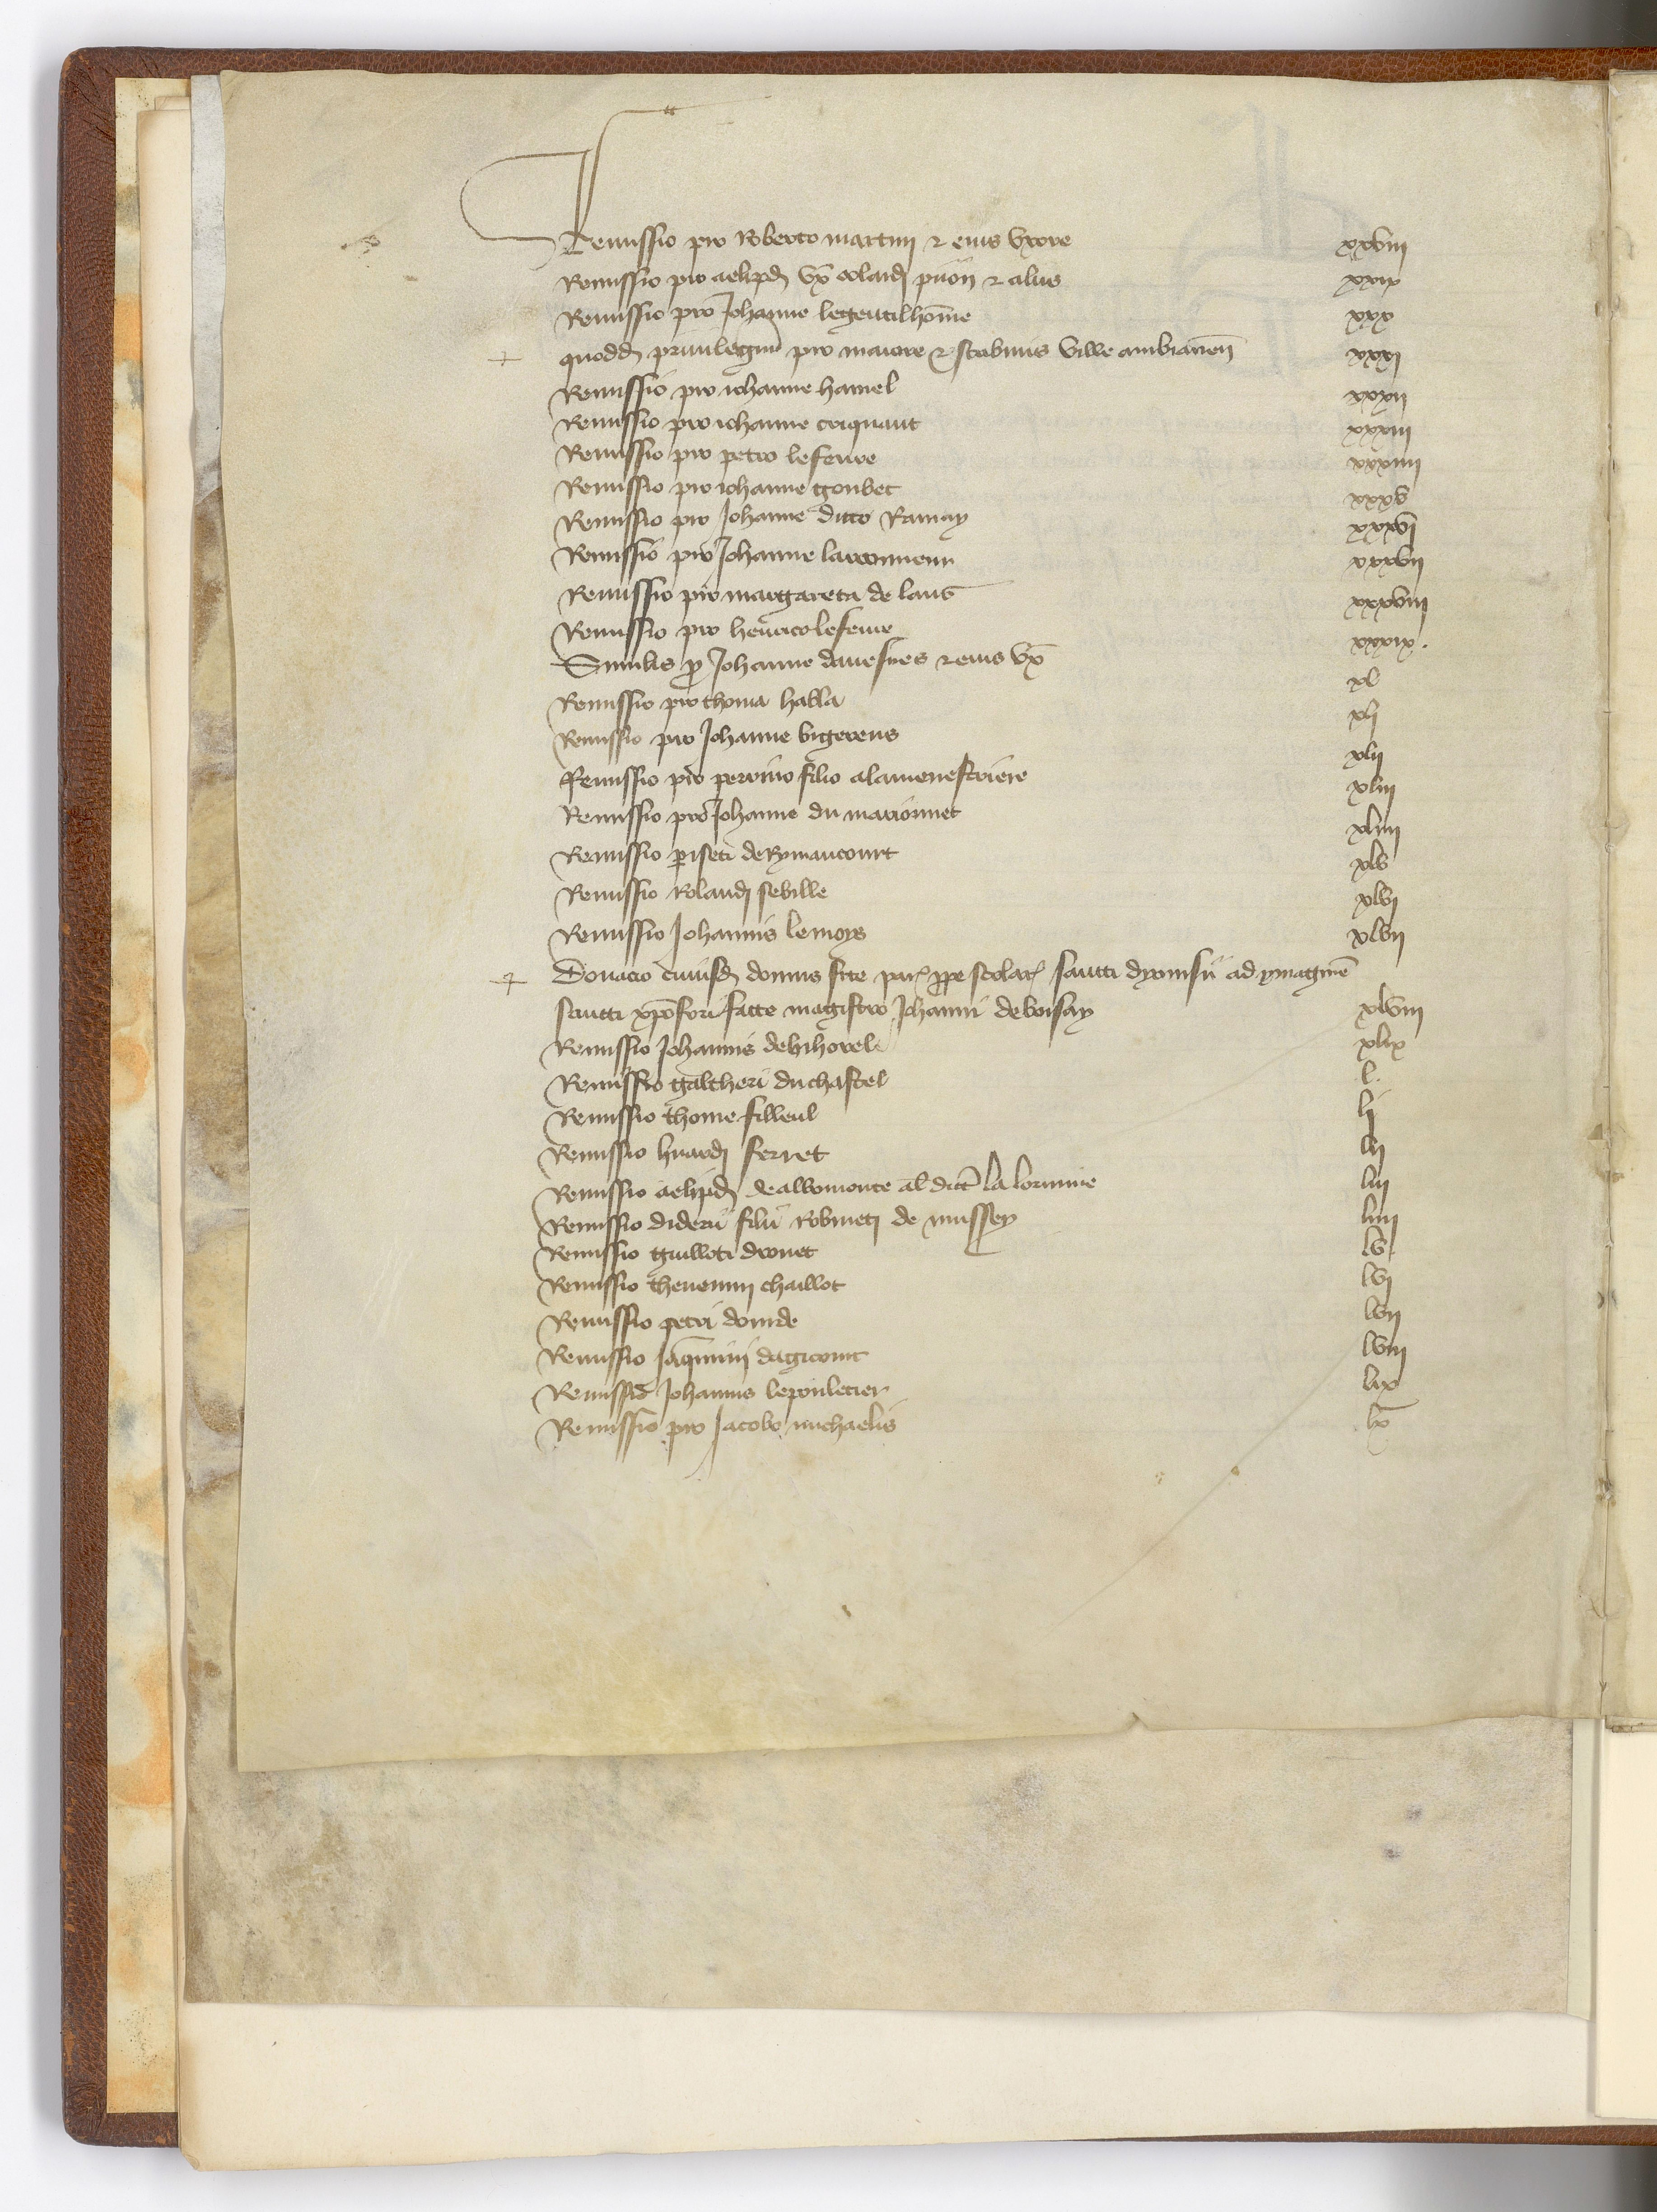 Remissio pro Roberto martini ⁊ eius Uxore xxviii
Remissio pro aelipd̄ Ux̄ colardi pñon ⁊ aliis xxix
Remissio pro Johanne legentilhom̄e xxx
quoddā priuilegiū pro maiore ⁊ scabinis ville ambianen̄ xxxi
Remissio pro iohanne hamel xxxii
Remissio pro iohanne criquant xxxiii
Remissio pro petro lefeure xxxiiii
Remissio pro iohanne goubet xxxv
Remissio pro Johanne dicto Ramay xxxvi
Remissio pro Johanne xxxvii
Remissio pro margareta de lans xxxviii
Remissio pro henrico lefeure xxxix.
Similis ꝓ Johanne dauesnes ⁊ eius Ux̄ xl
Remissio pro thoma halla xli
Remissio pro Johanne vigereus xlii
Remissio pro perrino filio alamenestriere xliii
Remissio pro Johanne du marionnet xliiii
Remissio periseti de Rymaucourt xlv
Remissio Rolandi sebille xlvi
Remissio Johannis lemoys xlvii
Donacio cuiusd̄ domus site par̄ ꝓpe scolar̄ sancti dyonisii ad ymaginē
sancti xp̄ofori facte magistro Johanni de boisay xlviii
Remissio Johannis de bihorel xlix
Remissio galtheri duchastel l.
Remissio thome filleul li
Remissio huardi ferret lii
Remissio aelipd̄ de albomonte al̄ dict̄ la lorninie liii
Remissio diderii filii Robineti de mussey liiii
Remissio guilloti drouet lv.
Remissio theuenini chaillot lvi
Remissio petri dominde lvii
Remissio Jaquinini dagicourt lviii
Remissio Johannis lepouletier lix
Remissio pro Jacobo michaelis lx